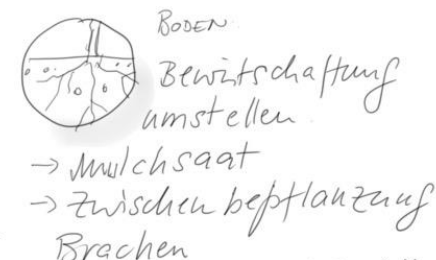 BODEN
Bewirtschaftung
umstellen
→ Mulchsaat
→ Zwischenbepflanzung
Brachen